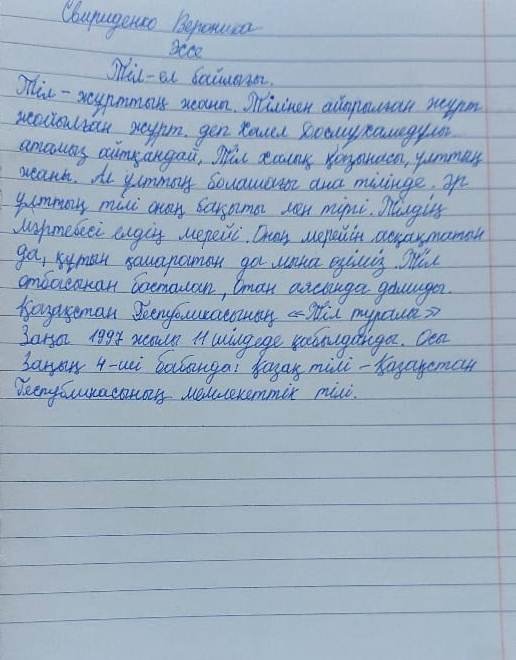 Свириденко Вероника
Эссе
Тіл-ел байлығы.
Тіл - жұрттың жаны. Тілінен айырылған жұрт
жойылған жұрт. деп Халел Досмухамедұлы
атамыз айтқандай, Тіл халық қазынасы, ұлттың
жаны. Ал ұлттың болашағы ана тілінде. Әр
ұлттың тілі оның бақыты мен тірігі. Тілдің
мәртебесі елдің мерейі. Оның мерейін асқақтатын
да, құтын қашыратын да мына өзіміз. Тіл
отбасынан басталап, Отан аясында дамиды.
Қазақстан Республикасының «Тіл туралы»
Заңы 1997 жылы 11 шілдеде қабылданды. Осы
Заңың 4-ші бабында: қазақ тілі - Қазақстан
Республикасының мемлекеттік тілі.